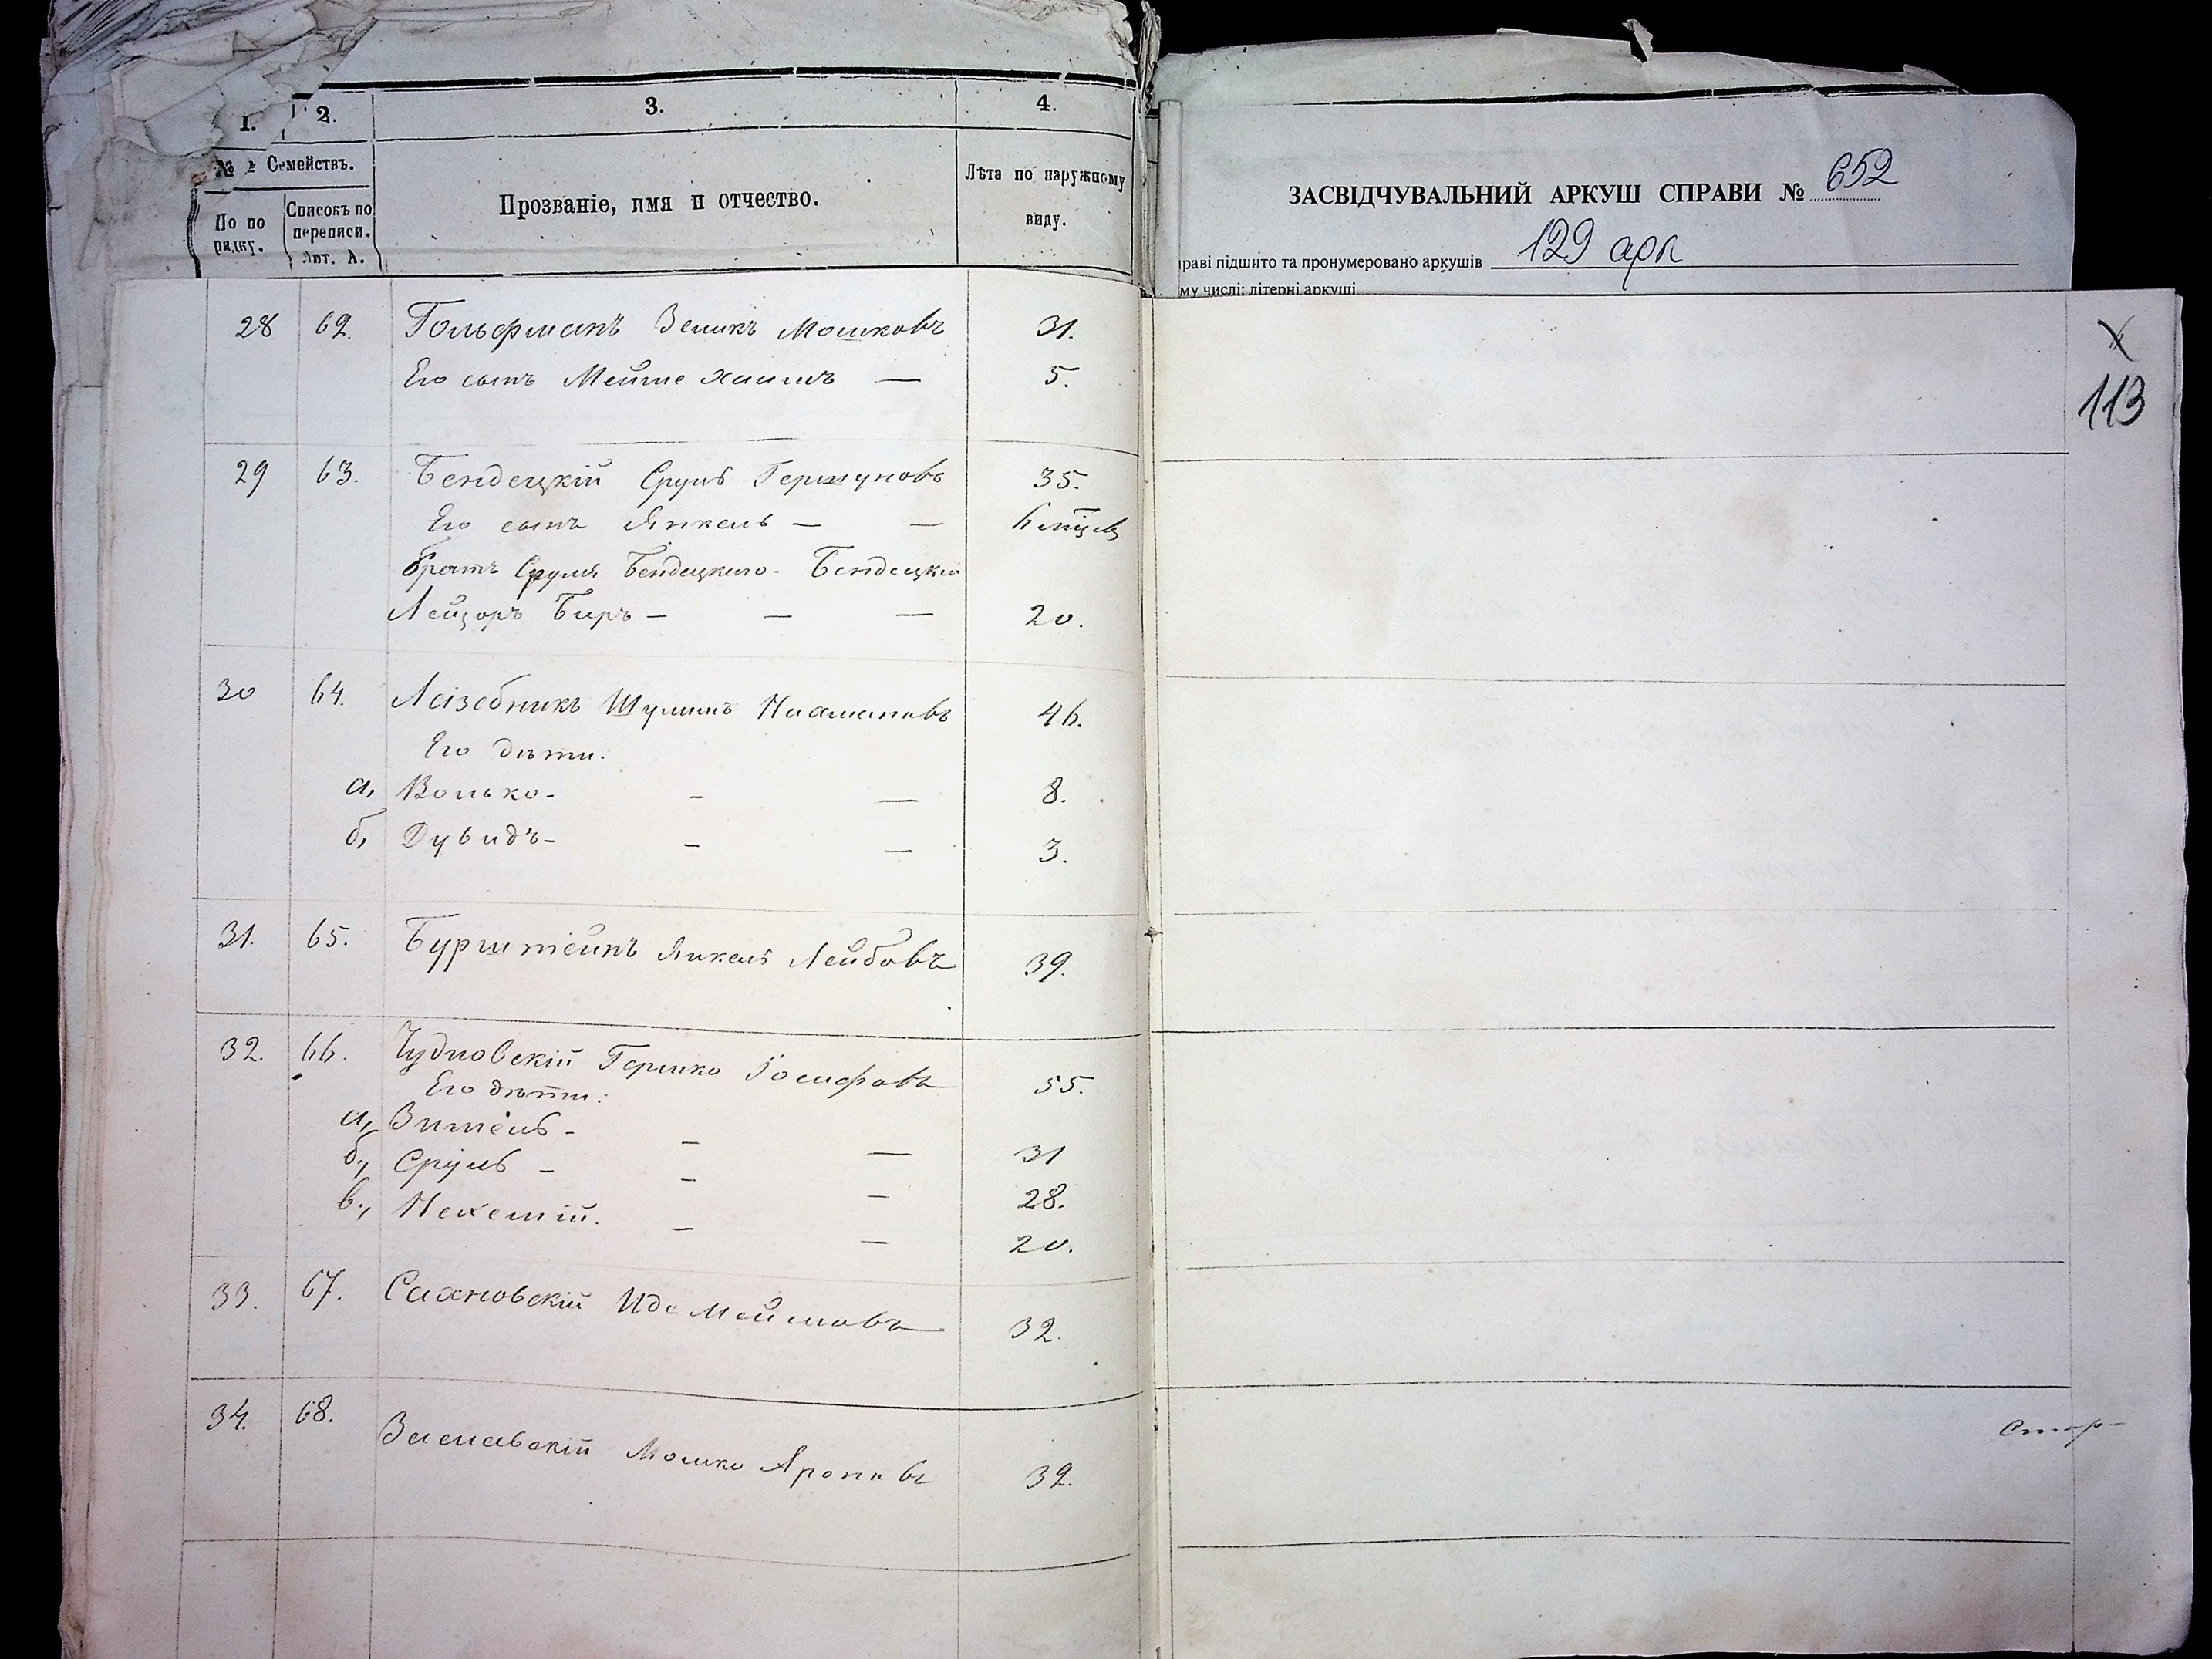 1. 2. 3. 4.
№№ Семействъ.
По по
рядку.
Списокъ по
переписи.
Лит. А.
Прозваніе, имя и отчество.
Лѣта по наружному
виду.
ЗАСВІДЧУВАЛЬНИЙ АРКУШ СПРАВИ № 652
раві підшито та пронумеровано аркушів 129 арк
му числі: літерні аркуші
113
28 62. Гольфманъ Зеликъ Мошковъ 31.
Его сынъ Мейше Хаимъ — 5.
29 63. Бендецкій Сруль Гершуновъ 35.
Его сынъ Янкель — —
братъ Сруля Бендецкого - Бендецкій
Лейзоръ Беръ — — — 20.
30 64. Лазебникъ Шулимъ Нахмановъ 46.
Его дѣти.
а, Волько - - — 8.
б, Дувидъ - - — 3.
31. 65. Бурштейнъ Янкель Лейбовъ 39.
32. 66. Чудновскій Гершко Іосифовъ 55.
Его дѣти:
а, - - — 31
б, Сруль - - - 28.
в, Нехемій. - — 20.
33. 67. Сахновскій Идс Мейшовъ 32.
34. 68. Заславскій Мошко Ароновъ 32.
Стар